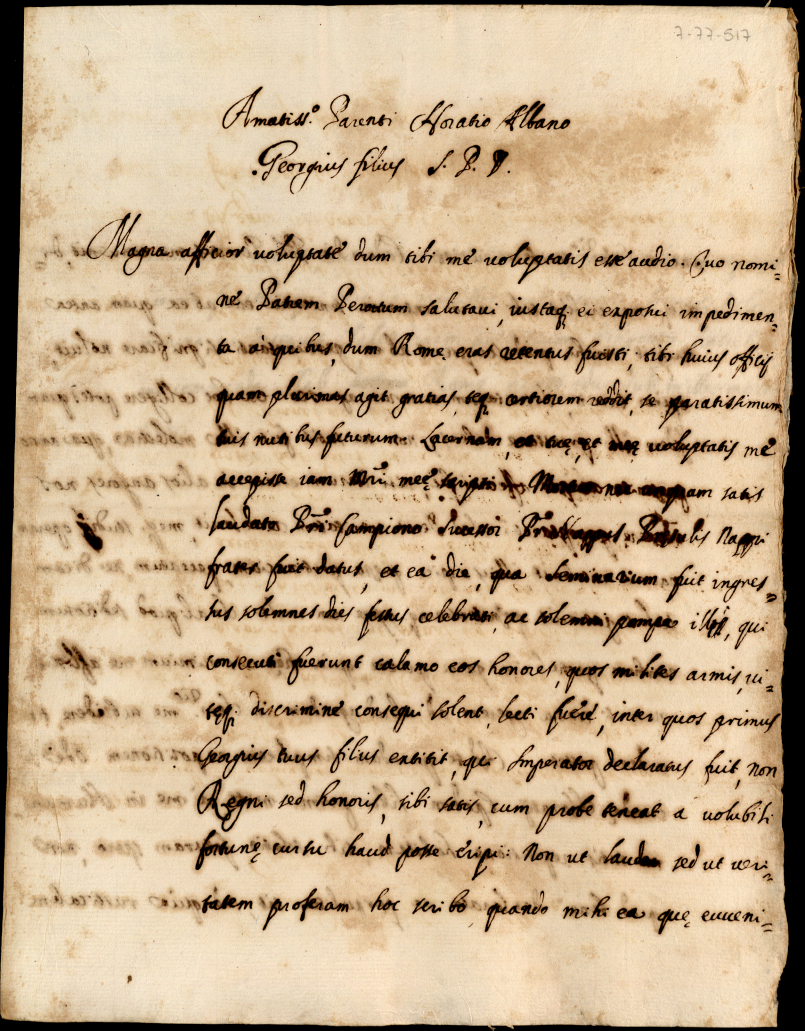 7-77-517
Amatiss.o Parenti Horatio Albano
Georgius filius S. P. D.
Magna afficior voluptate dum tibi me voluptatis esse audio. Quo nomi=
ne Patrem Perottum salutavi, iustasq; ei exposui impedimen=
ta à quibus, dum Rome eras retentus fuisti, tibi huius officij
quam plurimas agit gratias, teq; certiorem reddit, se paratissimum
tuis nutibus futurum. Lacernam, et tuę, et meę voluptatis me
accepisse iam meę scripsi. satis
laudato Campiono Successor
frater fuit datus, et ea die, qua Seminarium fuit ingres=
sus solemnes dies festus celebrati, ac solemni pompa illi, qui
consecuti fuerunt calamo eos honores, quos milites armis, vi=
tęq; discrimine consequi solent, lecti fuere, inter quos primus
Georgius tuus filius extitit, qui Imperator declaratus fuit, non
Regni sed honoris, tibi satis, cum probe teneat a volubili
fortunę cursu haud posse eripi: Non ut laudem sed ut veri=
tatem proferam hoc scribo, quando mihi ea quę evveni=